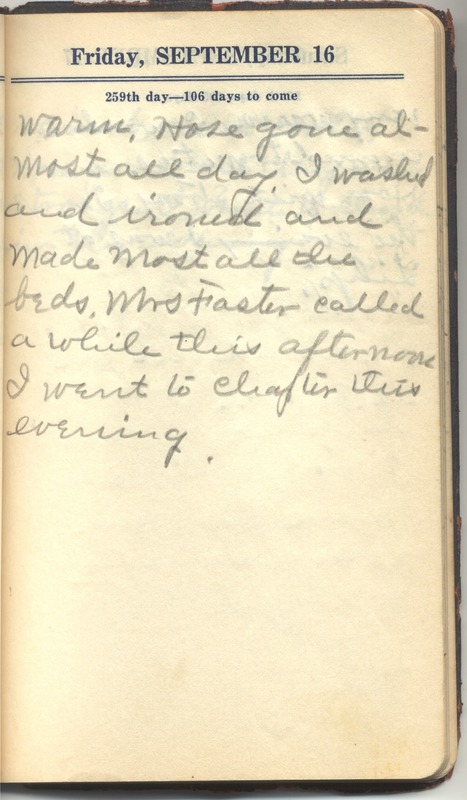 Friday, SEPTEMBER 16
259th day—106 days to come
Warm, Hose gone al-
most all day. I washed
and ironed and
made most all the
beds. Mrs Faster called
a while this afternoon
I went to Chapter this
evening.